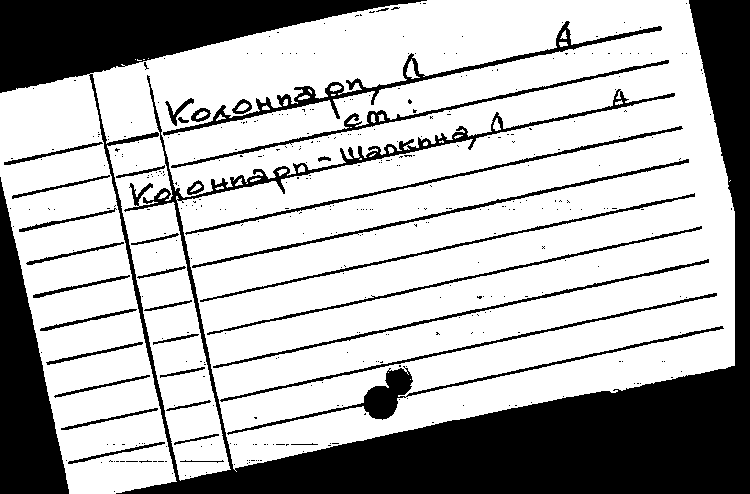 Колонтарп, Л А
ст.:
Колонтарп-Шапкина, Л А